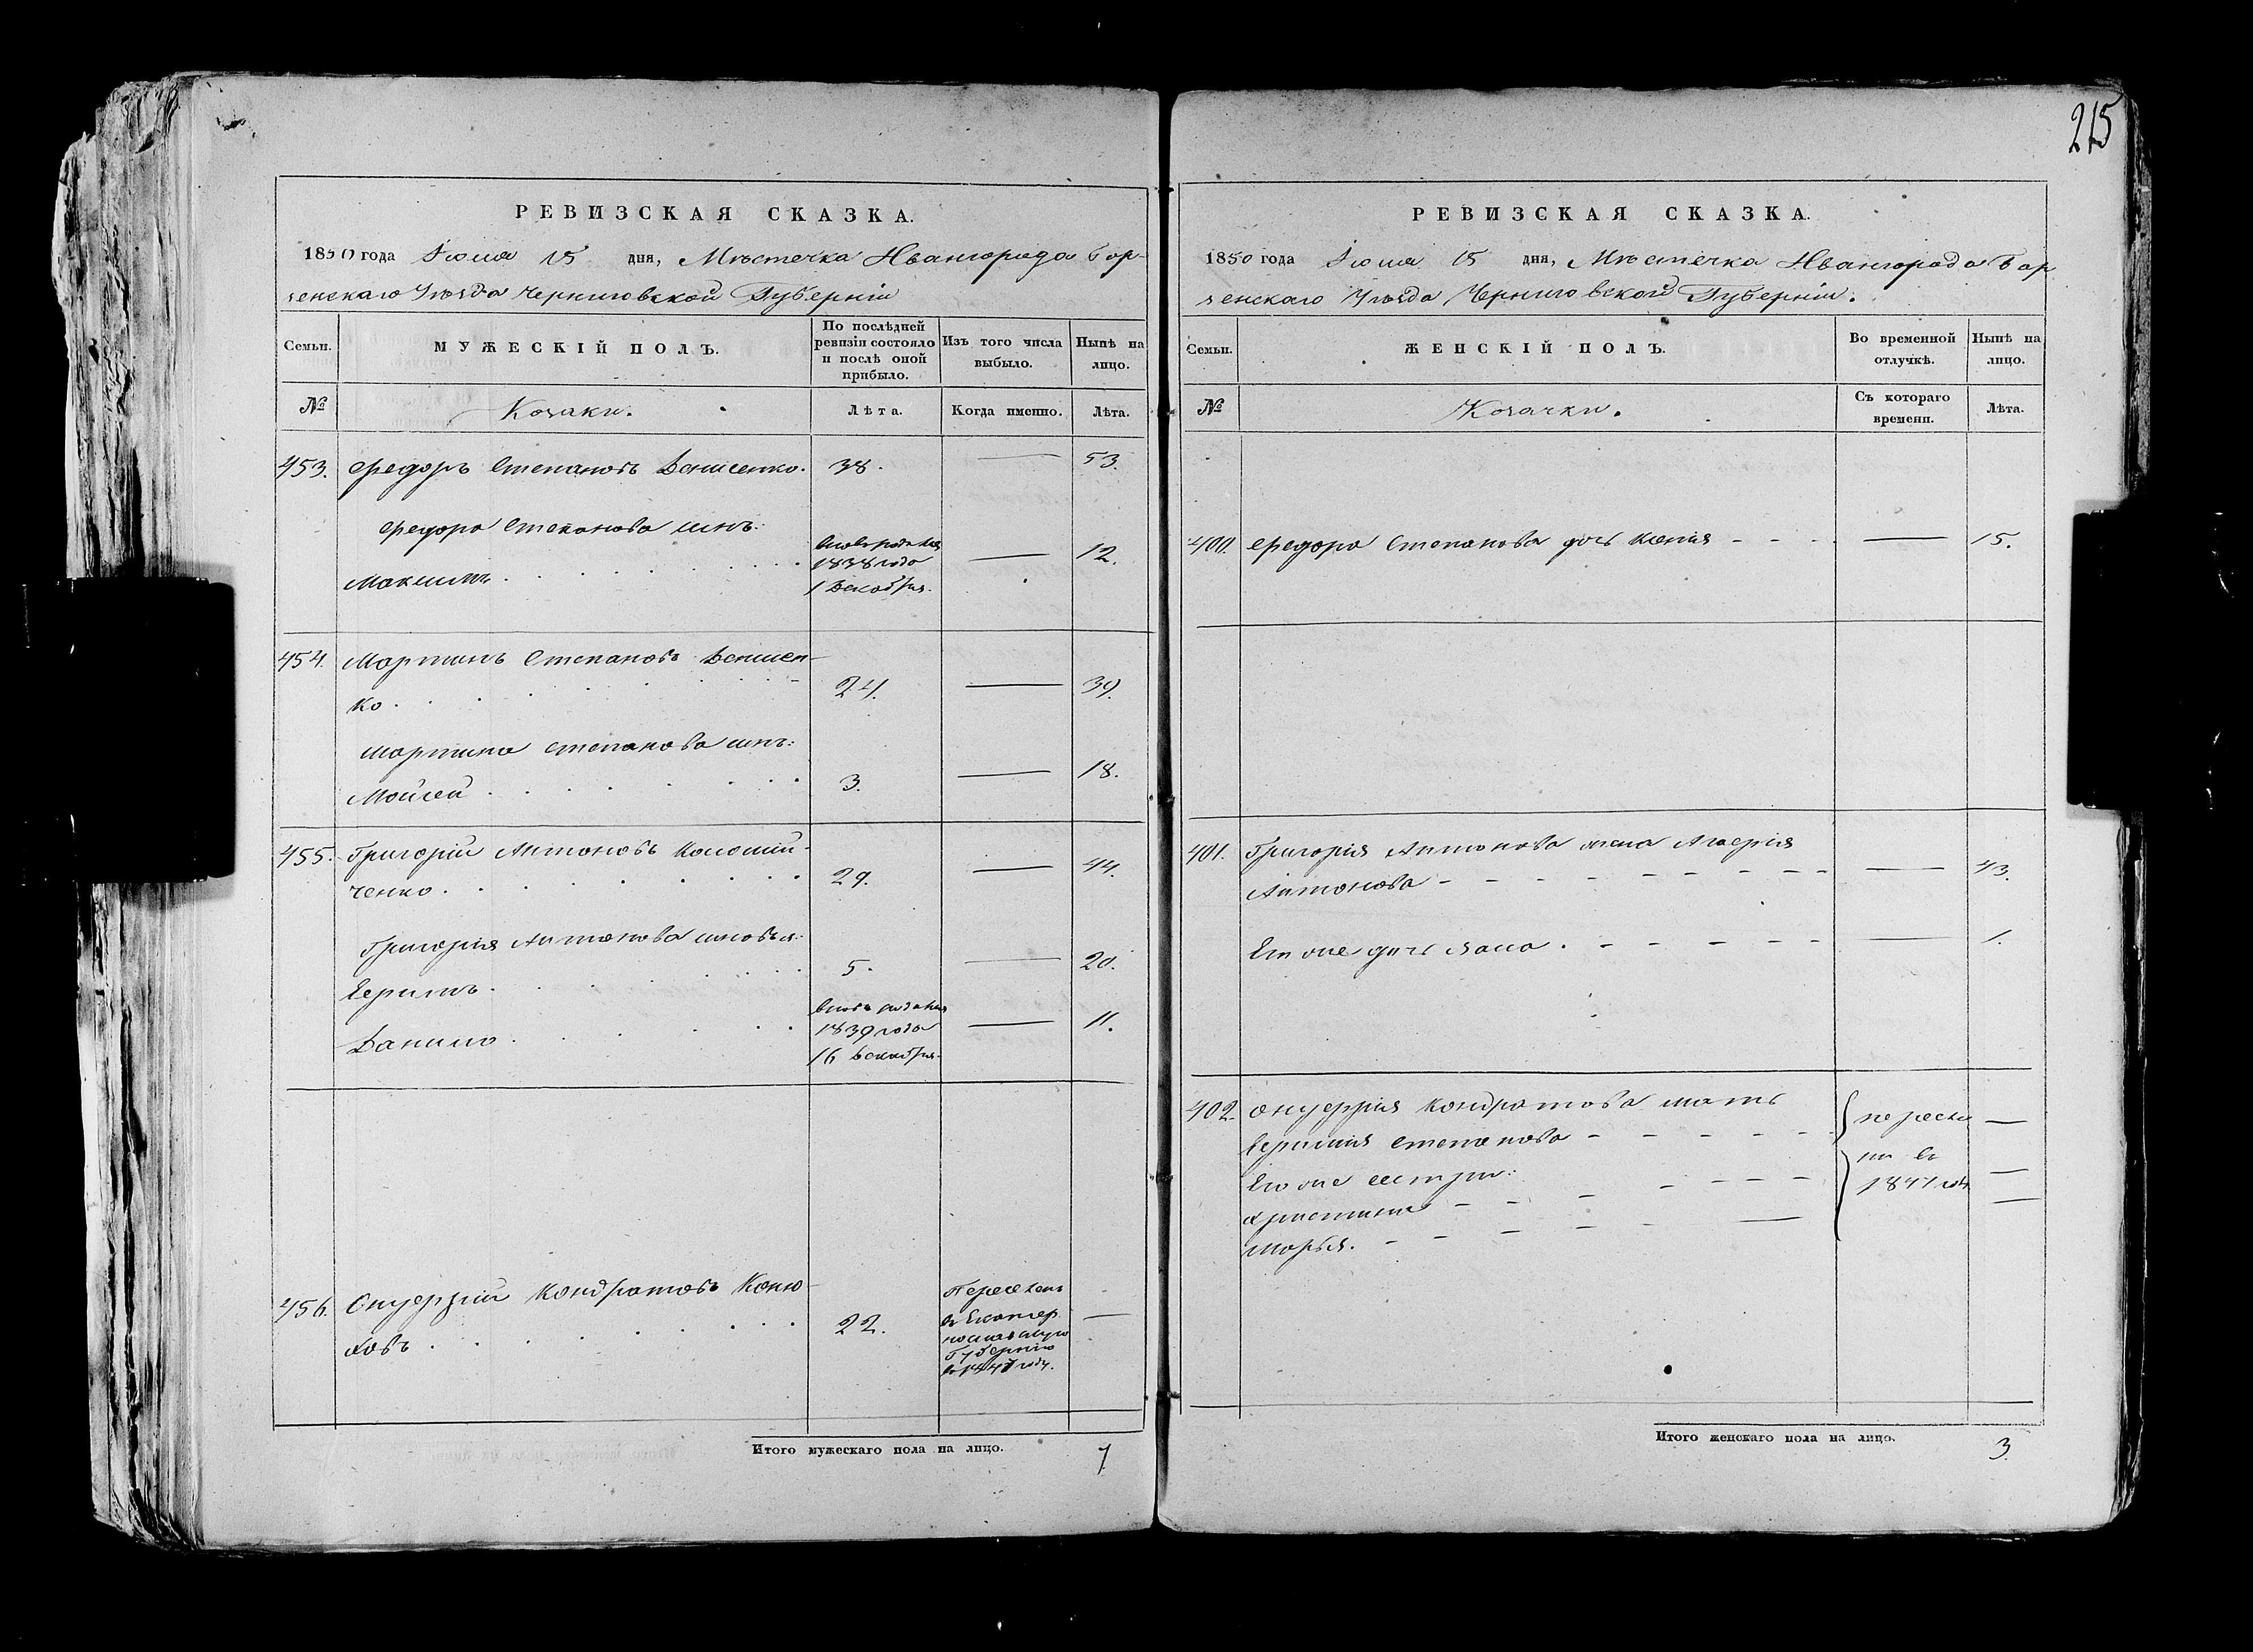 215
РЕВИЗСКАЯ СКАЗКА.
1850 года Іюля 15 дня, Мѣстечка Ивангорода Бор-
зенскаго Уѣзда Черниговской Губерніи
Семьи.
МУЖЕСКІЙ ПОЛЪ.
По послѣдней
ревизіи состояло
и послѣ оной
прибыло.
Изъ того числа
выбыло.
Нынѣ на
лицо.
№
Козаки.
Лѣта.
Когда именно.
Лѣта.
453. Федоръ Степановъ Денисенко. 38. — 53.
Федора Степанова сынъ:
Максимъ
1838 года
1 Декабря.
— 12.
454. Мартинъ Степановъ Денисен-
ко. 24. — 39.
Мартина Степанова сынъ:
Мойсей 3. — 18.
455. Григорій Антоновъ Коломій-
ченко. 29. — 44.
Григорія Антонова сыновья:
Ефимъ. 5. — 20.
Данило.
1839 года
16 Декабря.
— 11.
456. Онуфрій Кондратовъ Коню-
ховъ. 22.
Переселенъ
въ Екатер
инославскую
Губернію
въ 1847 году.
—
Итого мужескаго пола на лицо. 7.
РЕВИЗСКАЯ СКАЗКА.
1850 года Іюля 15 дня, Мѣстечка Ивангорода Бор
зенскаго Уѣзда Черниговской Губерніи.
Семьи.
ЖЕНСКІЙ ПОЛЪ.
Во временной
отлучкѣ.
Нынѣ на
лицо.
№
Козачки.
Съ котораго
времени.
Лѣта.
400. Федора Степанова дочь Ксенія — 15.
401. Григорія Антонова жена Агафія
Антонова — 43.
Его же дочь — 1.
402. Онуфрія Кондратова мать
Ефимія Степанова
Его же сестры:
Христина
Марья.
1847 году
Итого женскаго пола на лицо. 3.